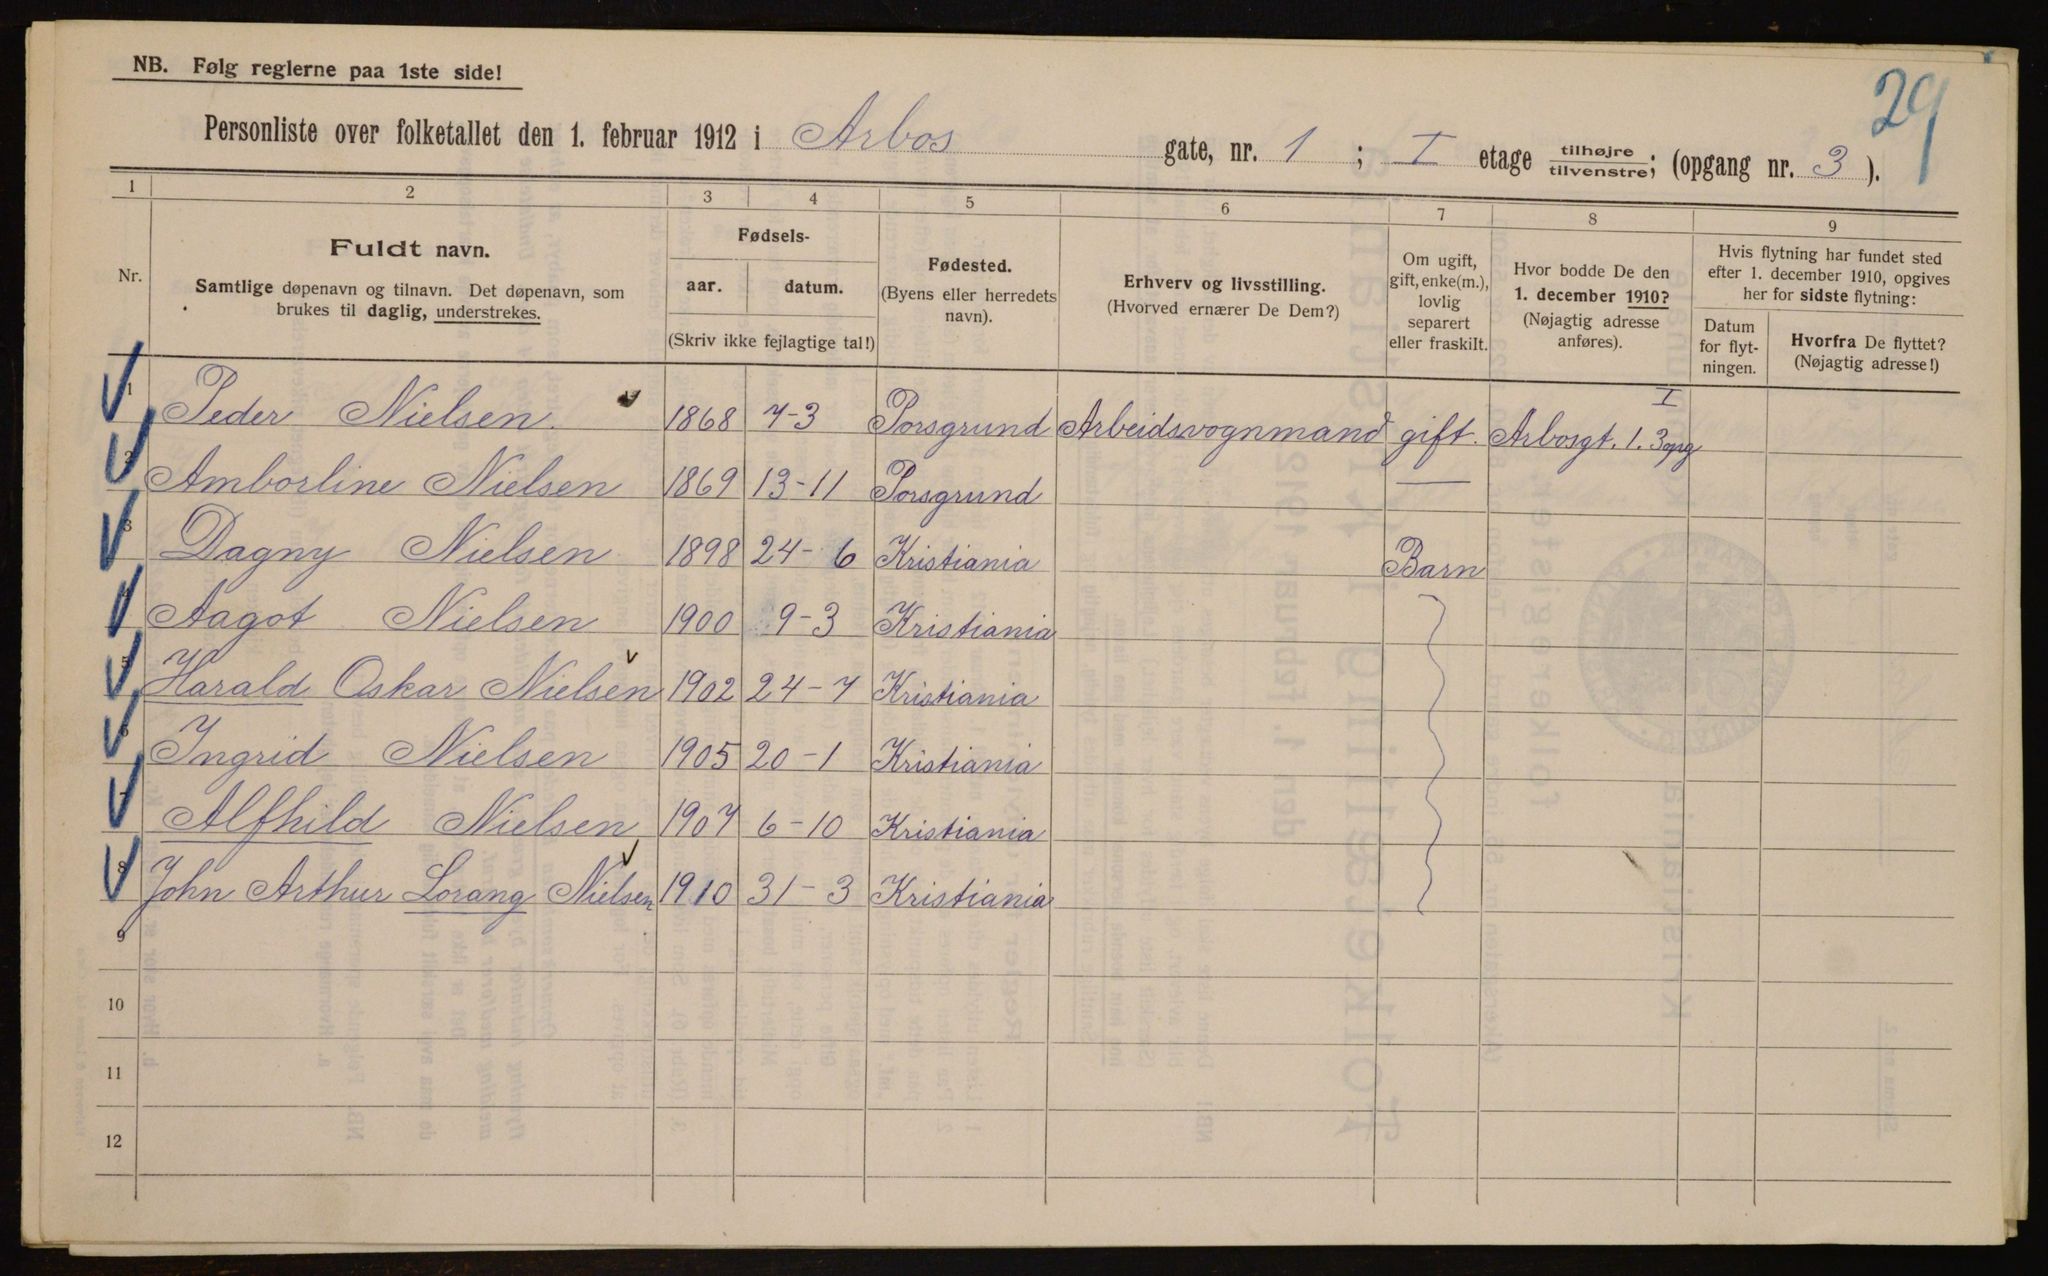 NB. Følg reglerne paa 1ste side!
29
Personliste over folketallet den 1. februar 1912 i Arbos gate, nr. 1 ; I etage tilhøjre/tilvenstre; (opgang nr. 3 ).
1 2 3 4 5 6 7 8 9
Nr.
Fuldt navn.
Samtlige døpenavn og tilnavn. Det døpenavn, som
brukes til daglig, understrekes.
Fødsels-
aar. datum.
(Skriv ikke fejlagtige tal!)
Fødested.
(Byens eller herredets
navn).
Erhverv og livsstilling.
(Hvorved ernærer De Dem?)
Om ugift,
gift, enke(m.),
lovlig
separert
eller fraskilt.
Hvor bodde De den
1. december 1910?
(Nøjagtig adresse
anføres).
Hvis flytning har fundet sted
efter 1. december 1910, opgives
her for sidste flytning:
Datum
for flyt-
ningen.
Hvorfra De flyttet?
(Nøjagtig adresse!)
I
1 Peder Nielsen 1868 7-3 Porsgrund Arbeidsvognmand gift. Arbosgt. 1. 3 opg
2 Amborline Nielsen 1869 13-11 Porsgrund —
3 Dagny Nielsen 1898 24-6 Kristiania Barn
4 Aagot Nielsen 1900 9-3 Kristiania
5 Harald Oskar Nielsen 1902 24-7 Kristiania
6 Ingrid Nielsen 1905 20-1 Kristiania
7 Alfhild Nielsen 1907 6-10 Kristiania
8 John Arthur Lorang Nielsen 1910 31-3 Kristiania
9
10
11
12